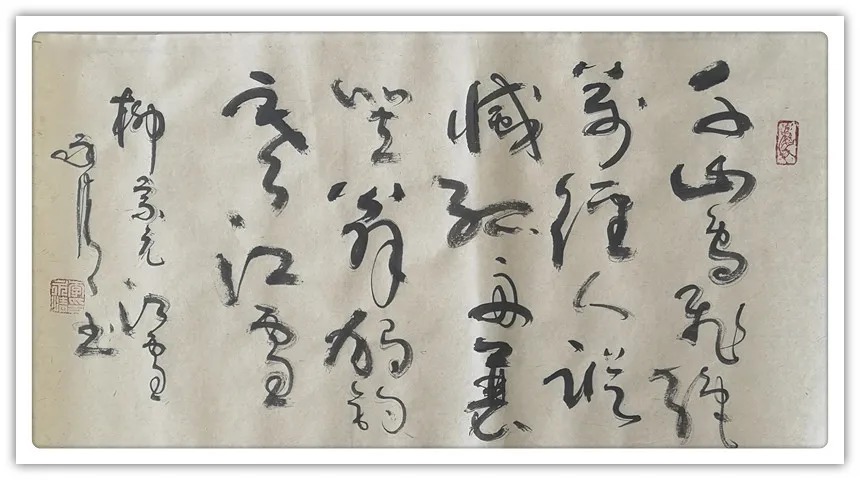 千山鳥飛絕
萬徑人蹤
滅孤舟蓑
笠翁獨釣
寒江雪
柳宗元江雪
书